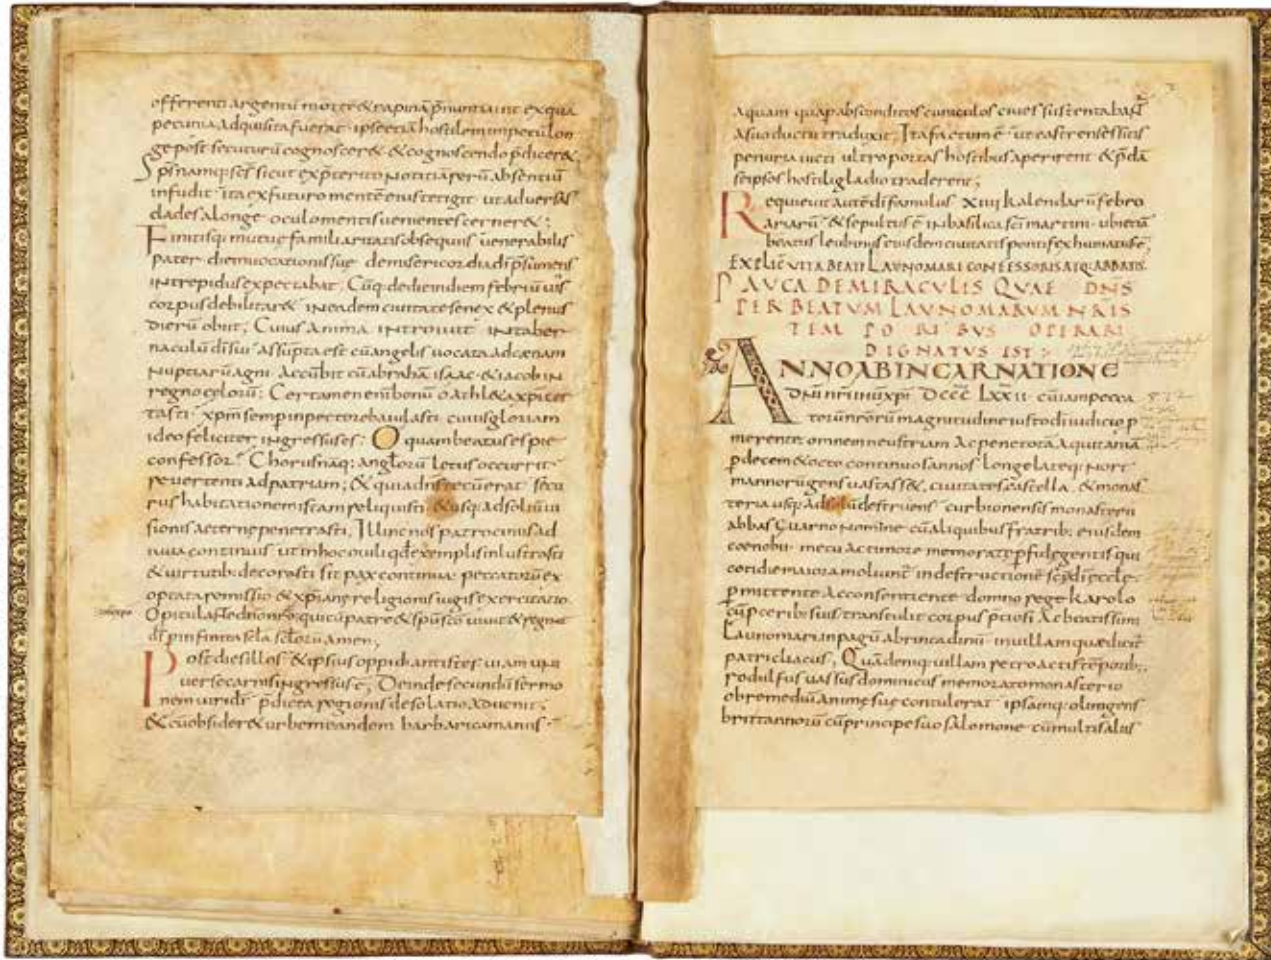 offerenti argentū morte & rapinā p̄nuntiavit ex qua
pecunia adquisita fuerat ipse etiā hostilem imperū lon
ge post secuturū cognosceret & cognoscendo p̄dicer&
Sp̄s namq; sc̄s sicut ex p̄terito notitiā rerū absentiū
infudit ita ex futuro mentē eius tetigit ut adversi
tades a longe oculo mentis venientes cerner&;
Finitisq; mutue familiaritatis obsequiis venerabilis
pater diem vocationis sue de misericordia dī p̄sumens
intrepidus expectabat, Cūq; die
corpus debilitar& in eadem civitate senex & plenus
dierū obiit, Cuius anima introivit in taber
naculū dī sui assūpta est cū angelis vocata ad cænam
nuptiarū agni Accūbit cū abrahā isaac & iacob in
regno celorū; Certamen enī bonū
xp̄m semp in pectore baiulasti cuius gloriam
ideo feliciter ingressus es; O quam beatus es pie
confessor, Chorus nāq; angl̄orū letus occurrit
revertenti ad patriam; & quia dn̄s tecū erat secu
rus habitationem istam reliquisti & usq; ad solium vi
sionis aeterne penetrasti, Illinc nos patrociniis ad
iuva continuis ut in hoc ovili qd̄ exemplis inlustrasti
& virtutib; decorasti sit pax continua peccatorū ex
optata remissio & xp̄iane religionis iugis exercitatio
qui cū patre & sp̄u sc̄o vivit & regnat
dſ p infinita sc̄la sc̄lorū amen;
Post dies illos & ipsius oppidi antistes viam uni
verse carnis ingressus ē, Deinde secundū sermo
nem viri dī p̄dicta regionis desolatio advenit,
& cū obsider& urbem eandem barbarica manus
aquam quae p absconditos cuniculos cives sustentabat
a suo ductu traduxit, Ita factum ē ut castrenses sitis
penuria victi ultro portas hostibus aperirent & p̄dā
seipsos hostili gladio traderent;
Requievit autē dī famulus XIIII kalendarū febro
ariarū & sepultus ē in basilica sc̄i martini ubi etiā
beatus leubinus eiusdem civitatis pontifex humatus ē;
EXPLIC̄ VITA BEATI LAUNOMARI CONFESSORIS ATQ; ABBATIS
PAUCA DE MIRACULIS QUAE DN̄S
PER BEATUM LAUNOMARUM NR̄IS
TEMPORIBUS OPERARI
DIGNATUS EST:
ANNO AB INCARNATIONE
DN̄I NR̄I IHŪ XP̄I DCCC LXXII cū iam pecca
torū nr̄orū magnitudine iusto dī iudicio p
merente omnem neustriam ac pene totā aquitaniā
p decem & octo continuos annos longe lateq; nort
mannorū gens vastass&, civitates castella & monas
teria usq; ad solū destruens curbionensis monasterii
abbas Guarno nomine cū aliquibus fratrib; eiusdem
coenobii metu ac timore memorate p̄fulgentis qui
cotidie maiora moliunt̄ in destructionē sc̄æ dī eccl̄e
p mittente ac consentiente domno rege karolo
cū p̄cerib; suis transtulit corpus p̄tiosi ac beatissimi
Launomari in pagū abrincadinū in villam quæ dicit̄
patricliacus, Quā deniq; villam retroactis tēporib;
rodulfus vassus dominicus memorato monasterio
ob remediū anime sue contulerat ipsamq; olim gens
brittannorū cū principe suo salomone cū multis aliis